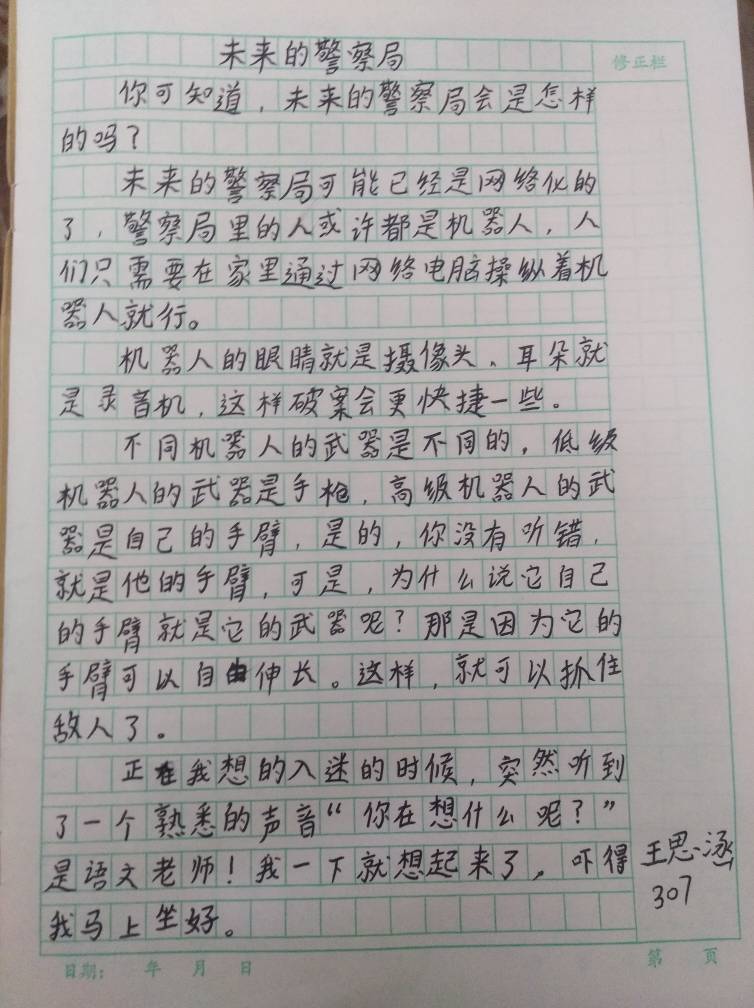 未来的警察局
修正栏
你可知道，未来的警察局会是怎样
的吗？
未来的警察局可能已经是网络化的
了，警察局里的人或许都是机器人，人
们只需要在家里通过网络电脑操纵着机
器人就行。
机器人的眼睛就是摄像头、耳朵就
是录音机，这样破案会更快捷一些。
不同机器人的武器是不同的，低级
机器人的武器是手枪，高级机器人的武
器是自己的手臂，是的，你没有听错，
就是他的手臂，可是，为什么说它自己
的手臂就是它的武器呢？那是因为它的
手臂可以自由伸长。这样，就可以抓住
敌人了。
正在我想的入迷的时候，突然听到
了一个熟悉的声音“你在想什么呢？”
是语文老师！我一下就想起来了，吓得
我马上坐好。
王思涵
307
日期： 年 月 日
第 页